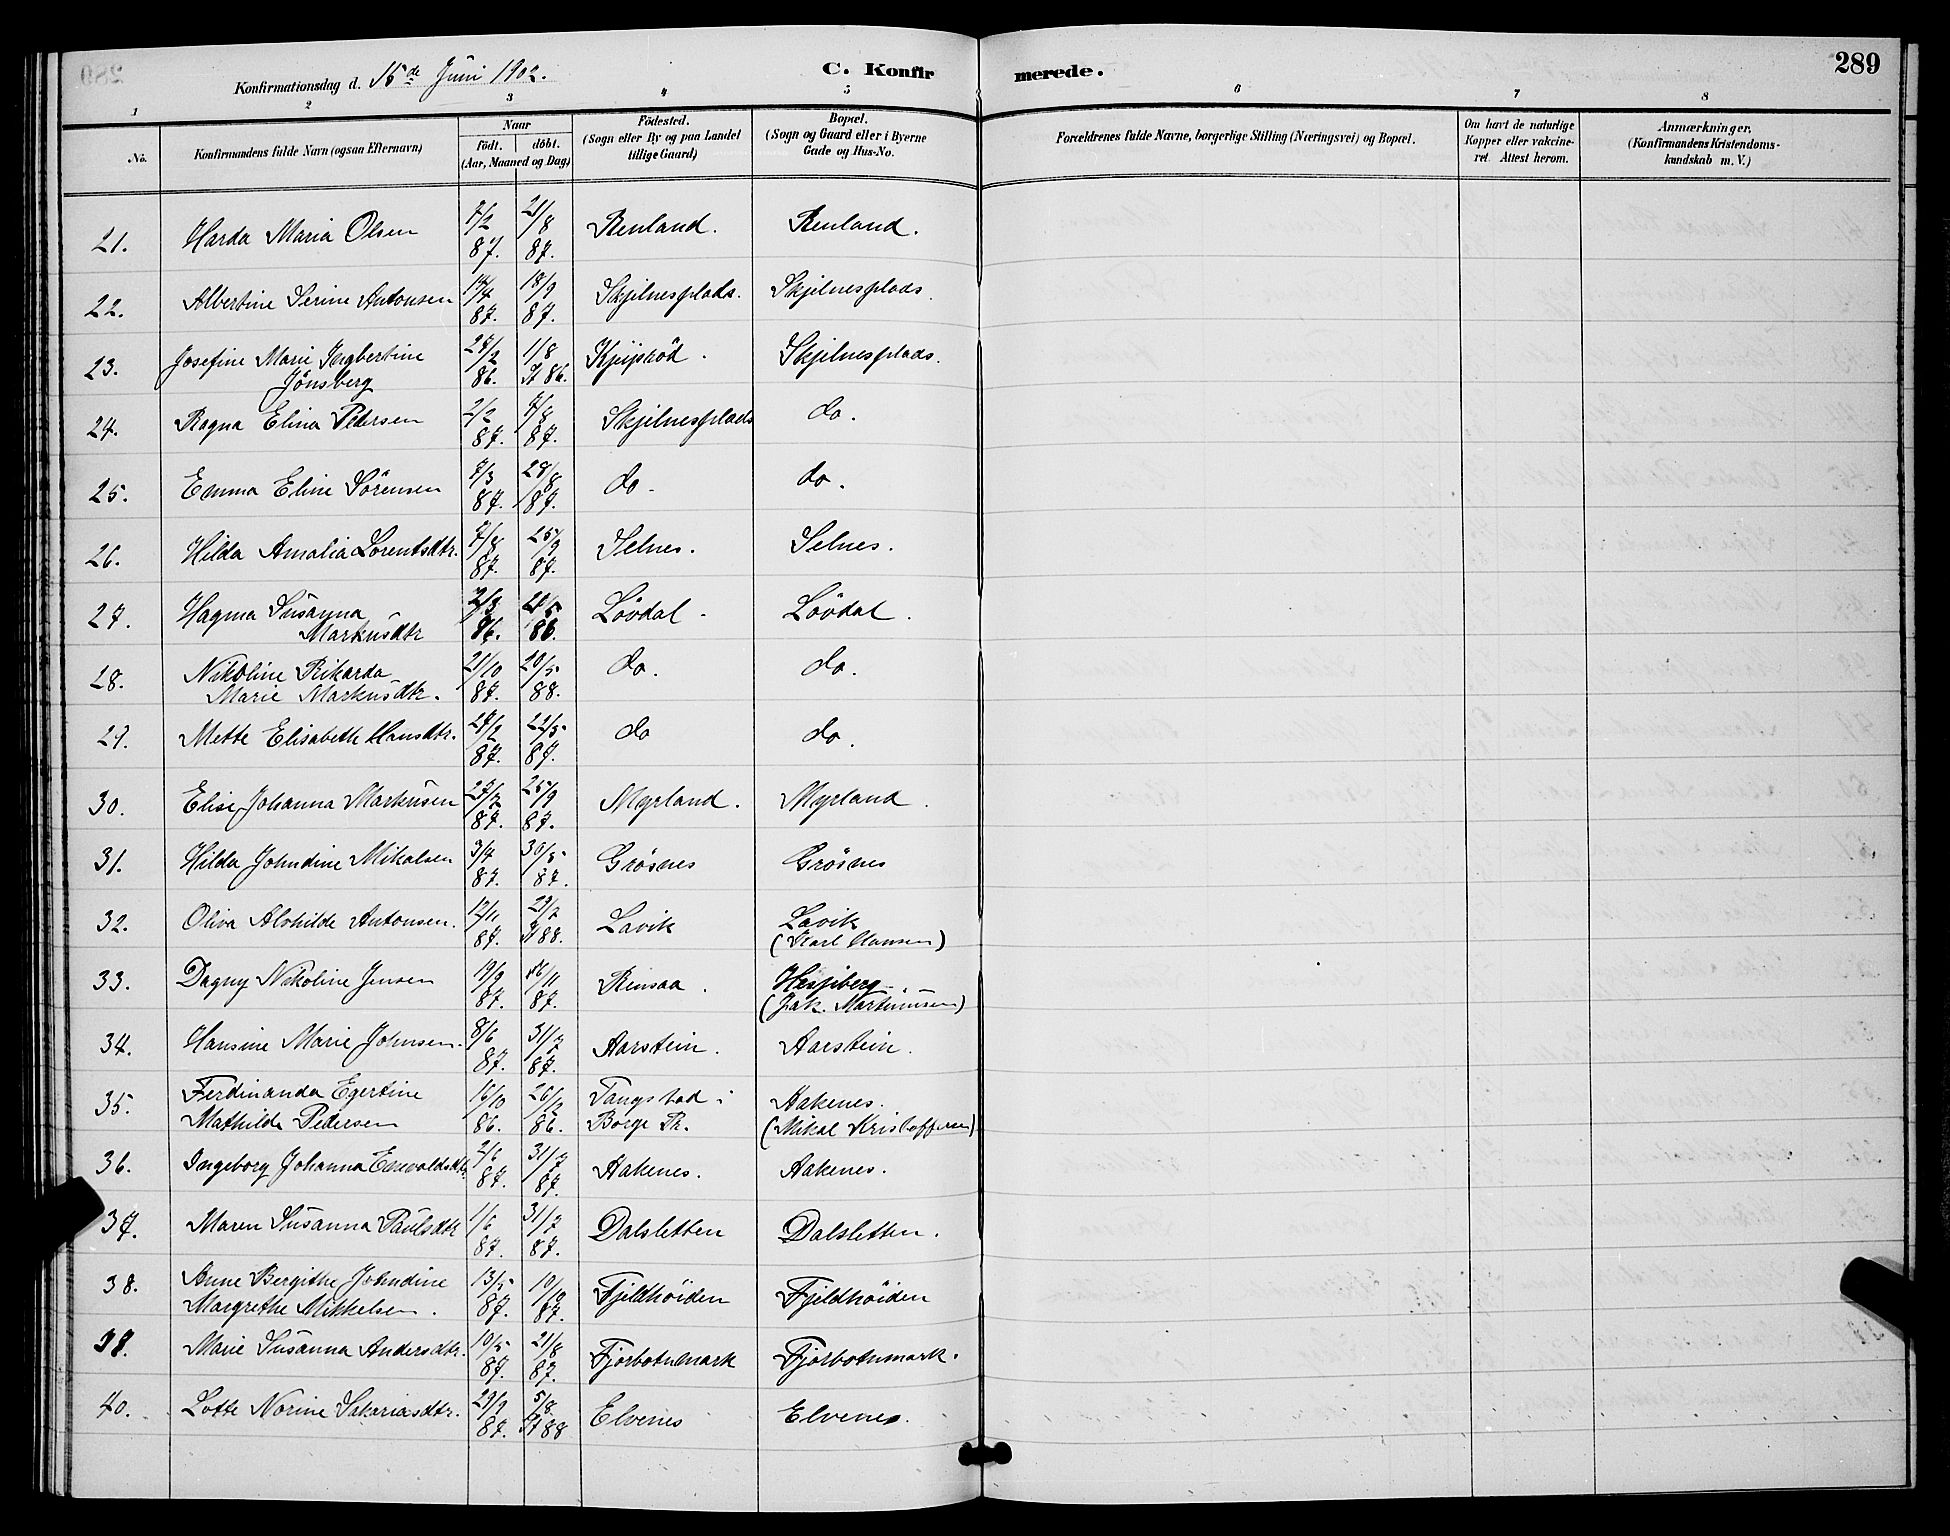 289
Konfirmationsdag d. 15de Juni 1902.
C. Konfirmerede.
1 2 3 4 5 6 7 8
No.
Konfirmandens fulde Navn (ogsaa Efternavn)
Naar
födt. döbt.
(Aar, Maaned og Dag)
Födested.
(Sogn eller By og paa Landet
tillige Gaard)
Bopæl.
(Sogn og Gaard eller i Byerne
Gade og Hus-No.
Forældrenes fulde Navne, borgerlige Stilling (Næringsvei) og Bopæl.
Om havt de naturlige
Kopper eller vakcine-
ret. Attest herom.
Anmærkninger.
(Konfirmandens Kristendoms-
kundskab m. V.)
21. Harda Maria Olsen 7/2 87. 21/8 87. Renland. Renland.
22. Albertine Serine Antonsen 14/4 87. 18/9 87. Skjelnesplads. Skjelnesplads.
23. Josefine Marie Ingbertine
Jönsberg 28/2 86. 1/8 St 86. Skjelnesplads.
24. Ragna Elina Pedersen 2/2 87. 7/8 87. Skjelnesplads do.
25. Emma Eline Sörensen 7/3 87. 28/8 87. do. do.
26. Hilda Amalia Lorentsdtr. 7/8 87. 25/9 87. Selnes. Selnes.
27. Hagma Susanna
Markusdtr 2/3 86. 86. Lövdal. Lövdal.
28. Nikoline Rikarda
Marie Markusdtr. 21/10 87. 20/5 88. do. do.
29. Mette Elisabeth Hansdtr. 27/2 87. 22/5 87. do do.
30. Elise Johanna Markusen 27/7 87. 25/9 87. Myrland. Myrland.
31. Hilda Johndine Mikalsen 3/4 87. 30/5 87. Grösnes Grösnes
32. Oliva Alvhilde Antonsen. 12/11 87. 29/2 St 88. Lavik Lavik
(Karl Hansen)
33. Dagny Nikoline Jensen 19/9 87. 87. Rinsaa. Hesjeberg.
(Jak. Martinusen)
34. Hansine Marie Johnsen. 8/6 87. 31/7 87. Aarstein. Aarstein.
35. Ferdinanda Egertine
Mathilde Pedersen 16/10 86. 26/12 86. Tangstad i
Borge Pr. Aakenes.
(Mikal Kristoffersen)
36. Ingeborg Johanna Enevoldsdtr. 2/6 87. 31/7 87. Aakenes. Aakenes.
37. Maren Susanna Paulsdtr 1/6 87. 31/7 87. Dalsletten Dalsletten.
38. Anne Bergithe Johndine
Margrethe Mikkelsen. 13/5 87. 10/10 87. Fjeldhöiden Fjeldhöiden
39. Marie Susanna Andersdtr. 10/5 87. 21/8 87. Fjorbotnmark Fjorbotnmark.
40. Lotte Norine Sakariasdtr. 29/9 87. 5/8 St 88 Elvenes Elvenes.